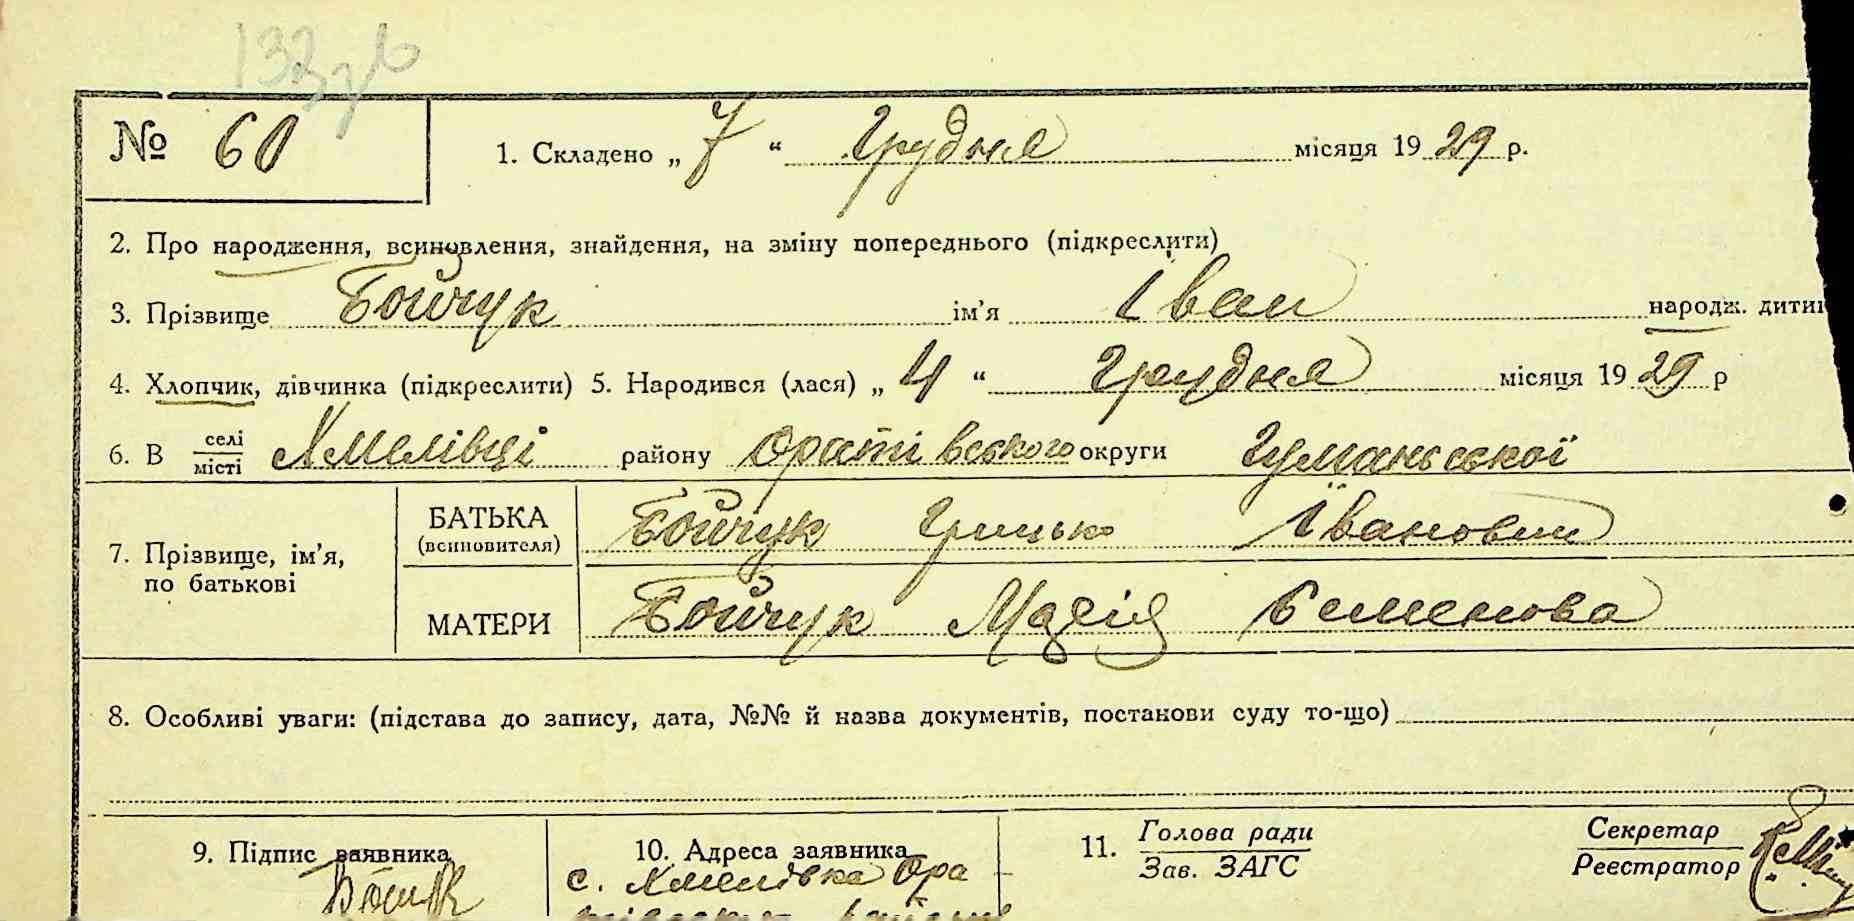 № 60
1. Складено „ 7 “ Грудня місяця 1929 р.
2. Про народження, всиновлення, знайдення, на зміну попереднього (підкреслити)
3. Прізвище Бойчук ім’я Іван народж. дити
4. Хлопчик, дівчинка (підкреслити) 5. Народився (лася) „ 4 “ Грудня місяця 1929 р
6. В селі
місті Хмелівці району Оратівського округи Гуманьської
7. Прізвище, ім’я,
по батькові
БАТЬКА
(всиновителя)
Бойчук Грицько Іванович
МАТЕРИ
Бойчук Марія Семенова
8. Особливі уваги: (підстава до запису, дата, №№ й назва документів, постанови суду то-що)
9. Підпис заявника
10. Адреса заявника
с. Хмелівка Ора
11. Голова ради
Зав. ЗАГС
Секретар
Реестратор